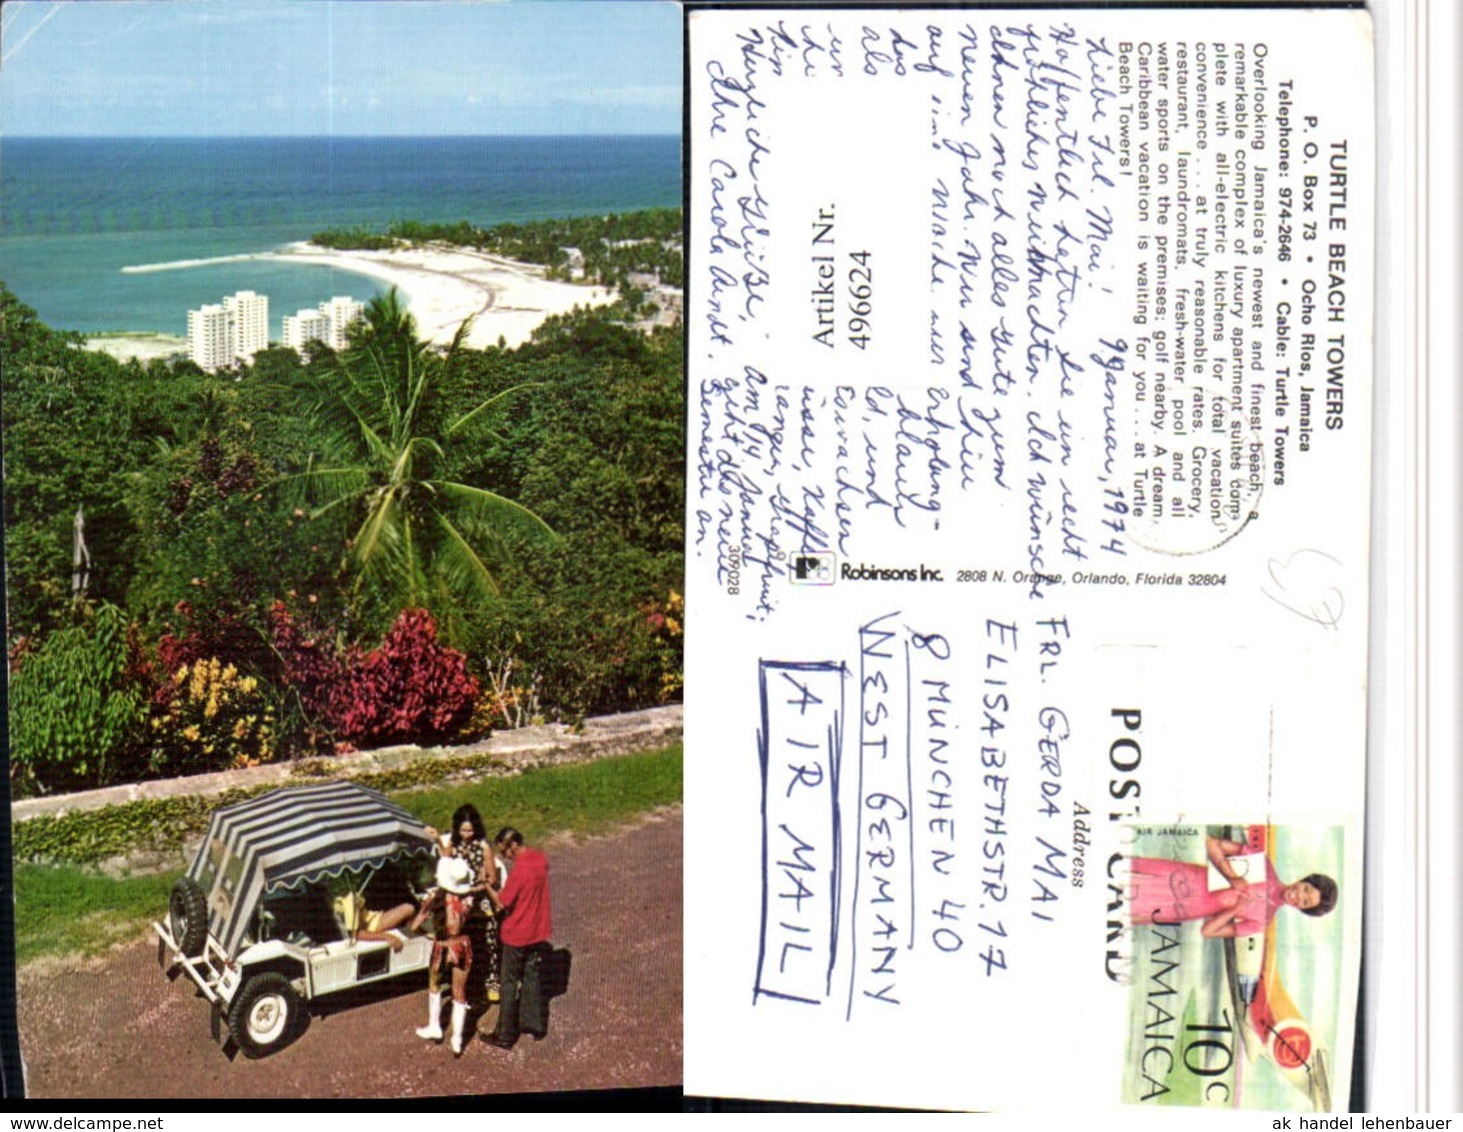 TURTLE BEACH TOWERS
P. O. Box 73 • Ocho Rios, Jamaica
Telephone: 974-2646 • Cable: Turtle Towers
Overlooking Jamaica's newest and finest beach, a
remarkable complex of luxury apartment suites com-
plete with all-electric kitchens for total vacation
convenience . . . at truly reasonable rates. Grocery,
restaurant, laundromats, fresh-water pool and all
water sports on the premises; golf nearby. A dream
Caribbean vacation is waiting for you . . . at Turtle
Beach Towers!
9 Januar, 1974
Liebe Frl. Mai!
Hoffentlich hatten Sie ein recht
fröhliches Weihnachten. Ich wünsche
Ihnen noch alles Gute zum
neuen Jahr. Wir sind hier
auf eine Woche zur Erholung-
das blaue
als ld, und
un Erwachsen
die üsse, Kaffe
Sin rangen, Grapefruit;
Herzliche Grüße, am 14 Januar
Ihre Carola Arndt. geht das neue
Semester an.
Artikel Nr.
496624
309028
Robinsons Inc. 2808 N. Orange, Orlando, Florida 32804
POST CARD
Address
FRL. GERDA MAI
ELISABETHSTR. 17
8 MÜNCHEN 40
WEST GERMANY
AIR MAIL
AIR JAMAICA
JAMAICA
JAMAICA
10c
ak handel lehenbauer